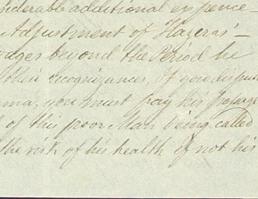 iderable additional expence
Adjustment of Hazeras'
udges beyond the Period he
their recognizances, if you
ma, you must pay his passage
of this poor Man being called
the risk of his health if not his